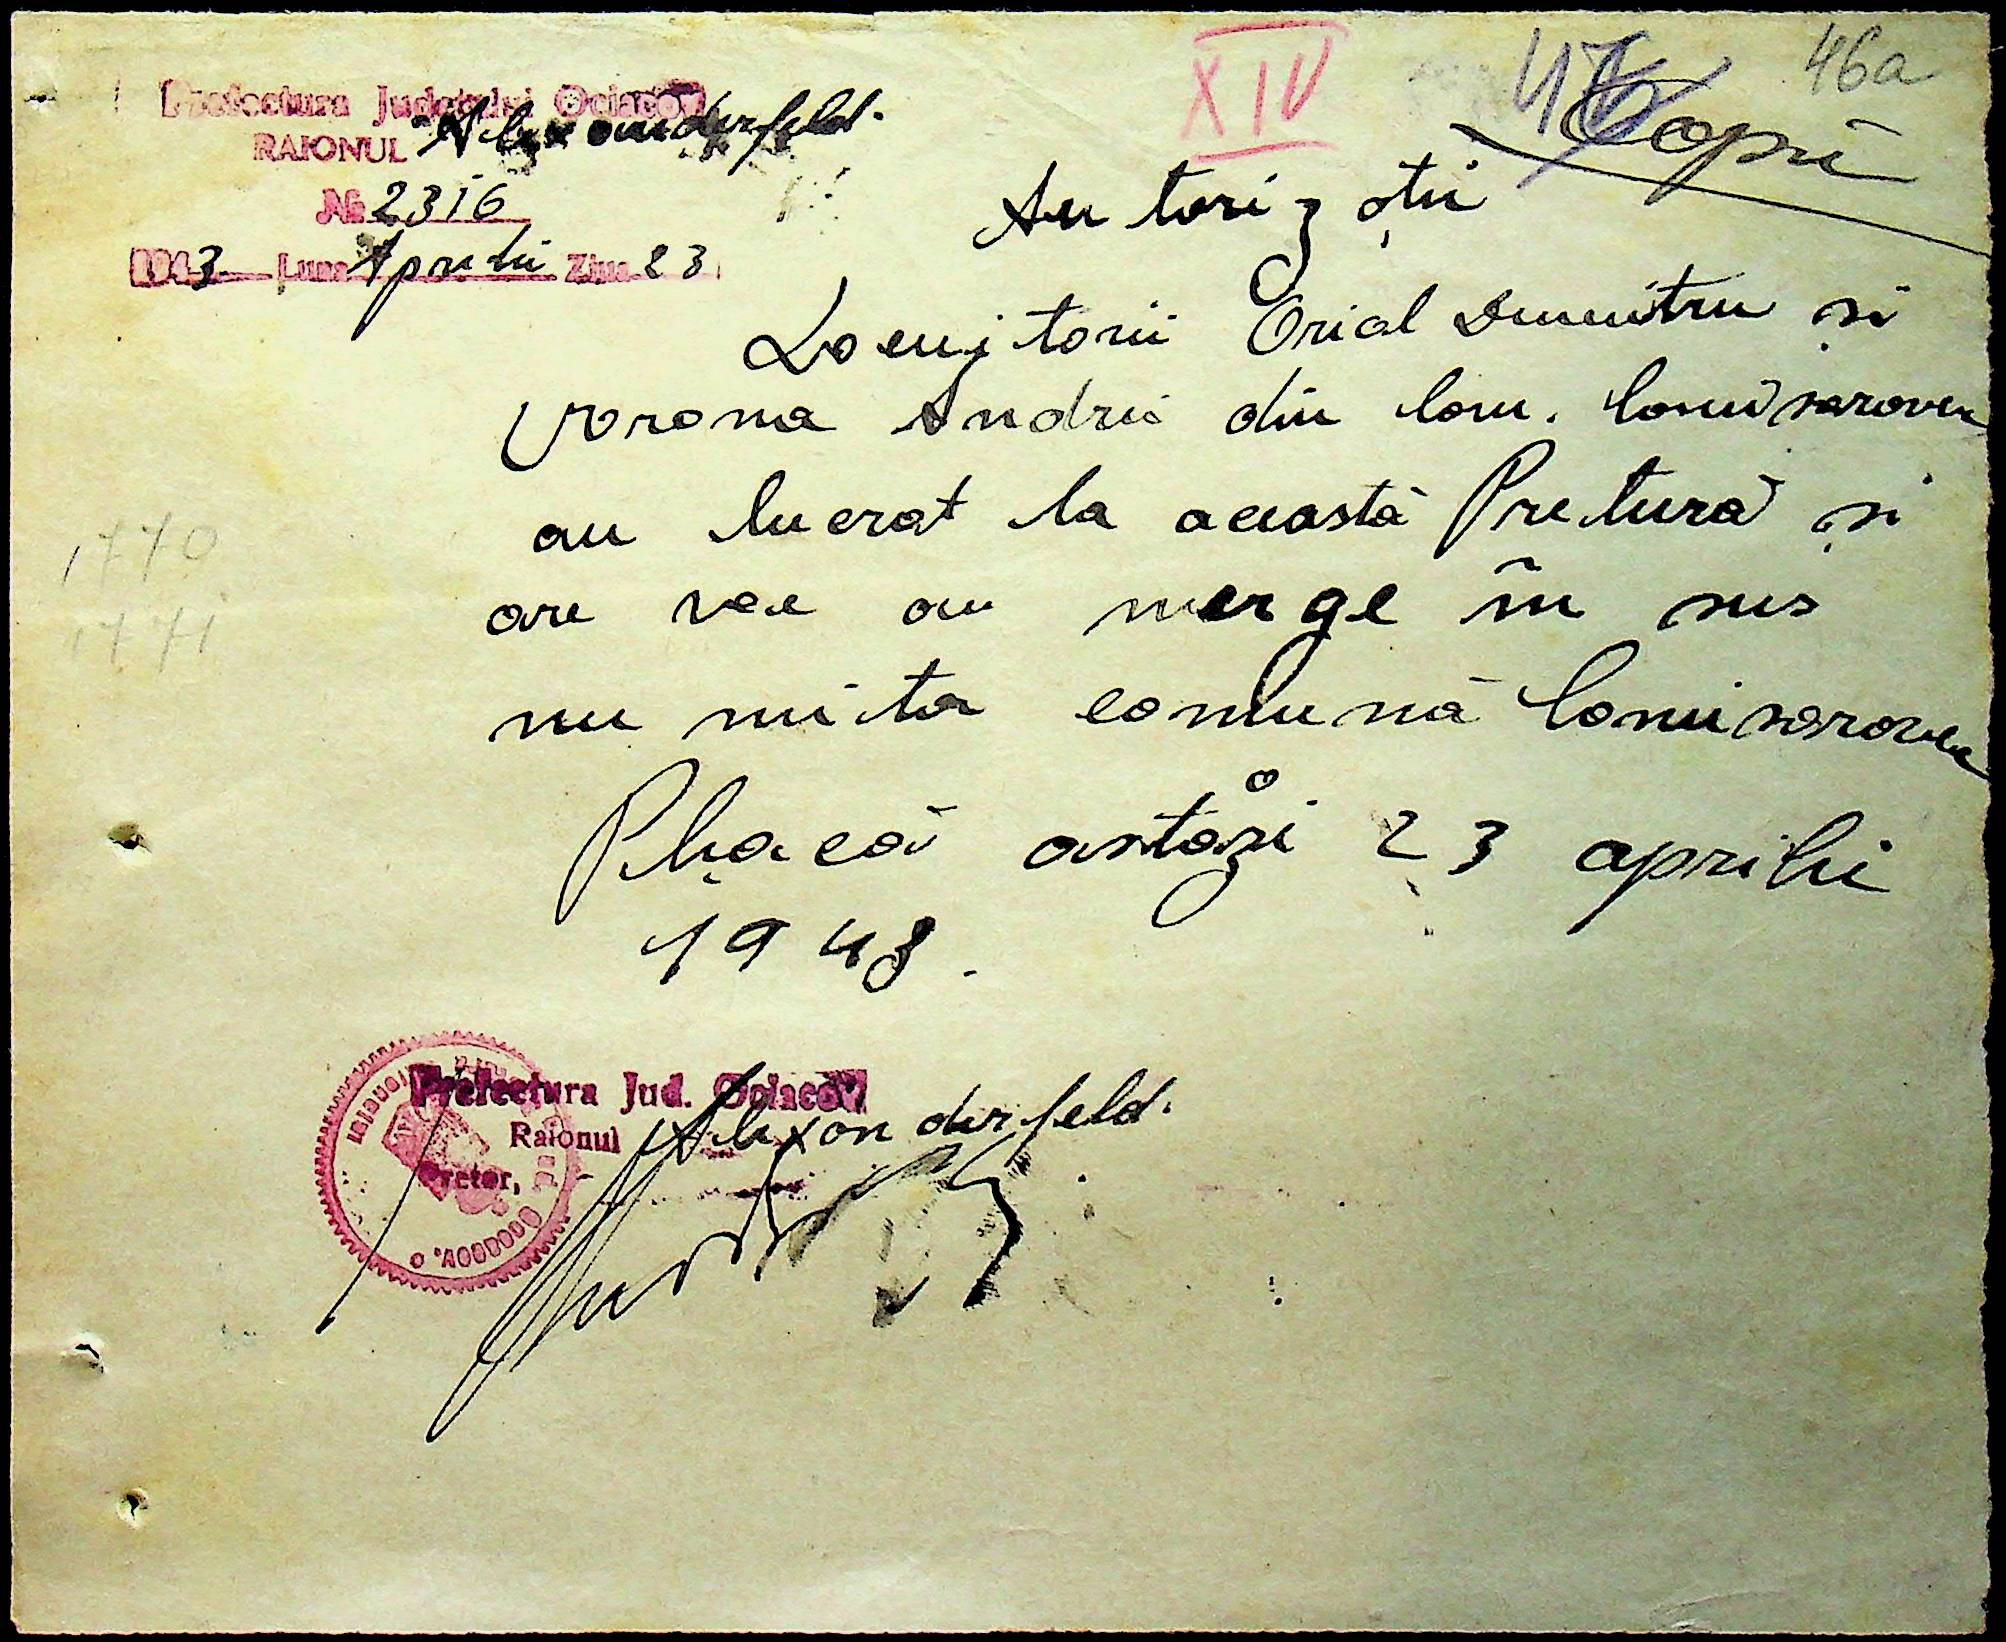 46a
47
XIV
Copii
Prefectura Judetului Ociacov
RAIONUL Alexanderfeld.
№ 2316
1943 Luna Aprilie Ziua 23
Autorizații
Locuitorii Orial Dumitru și
Vorona Andrei din Com. Comisarovca
au lucrat la această Pretură și
are voe au merge în sus
numita comună Comisarovca
Pleacă astăzi 23 aprilie
1943.
1770
1771
Prefectura Jud. Ociacov
Raionul Alexanderfeld.
Pretor,